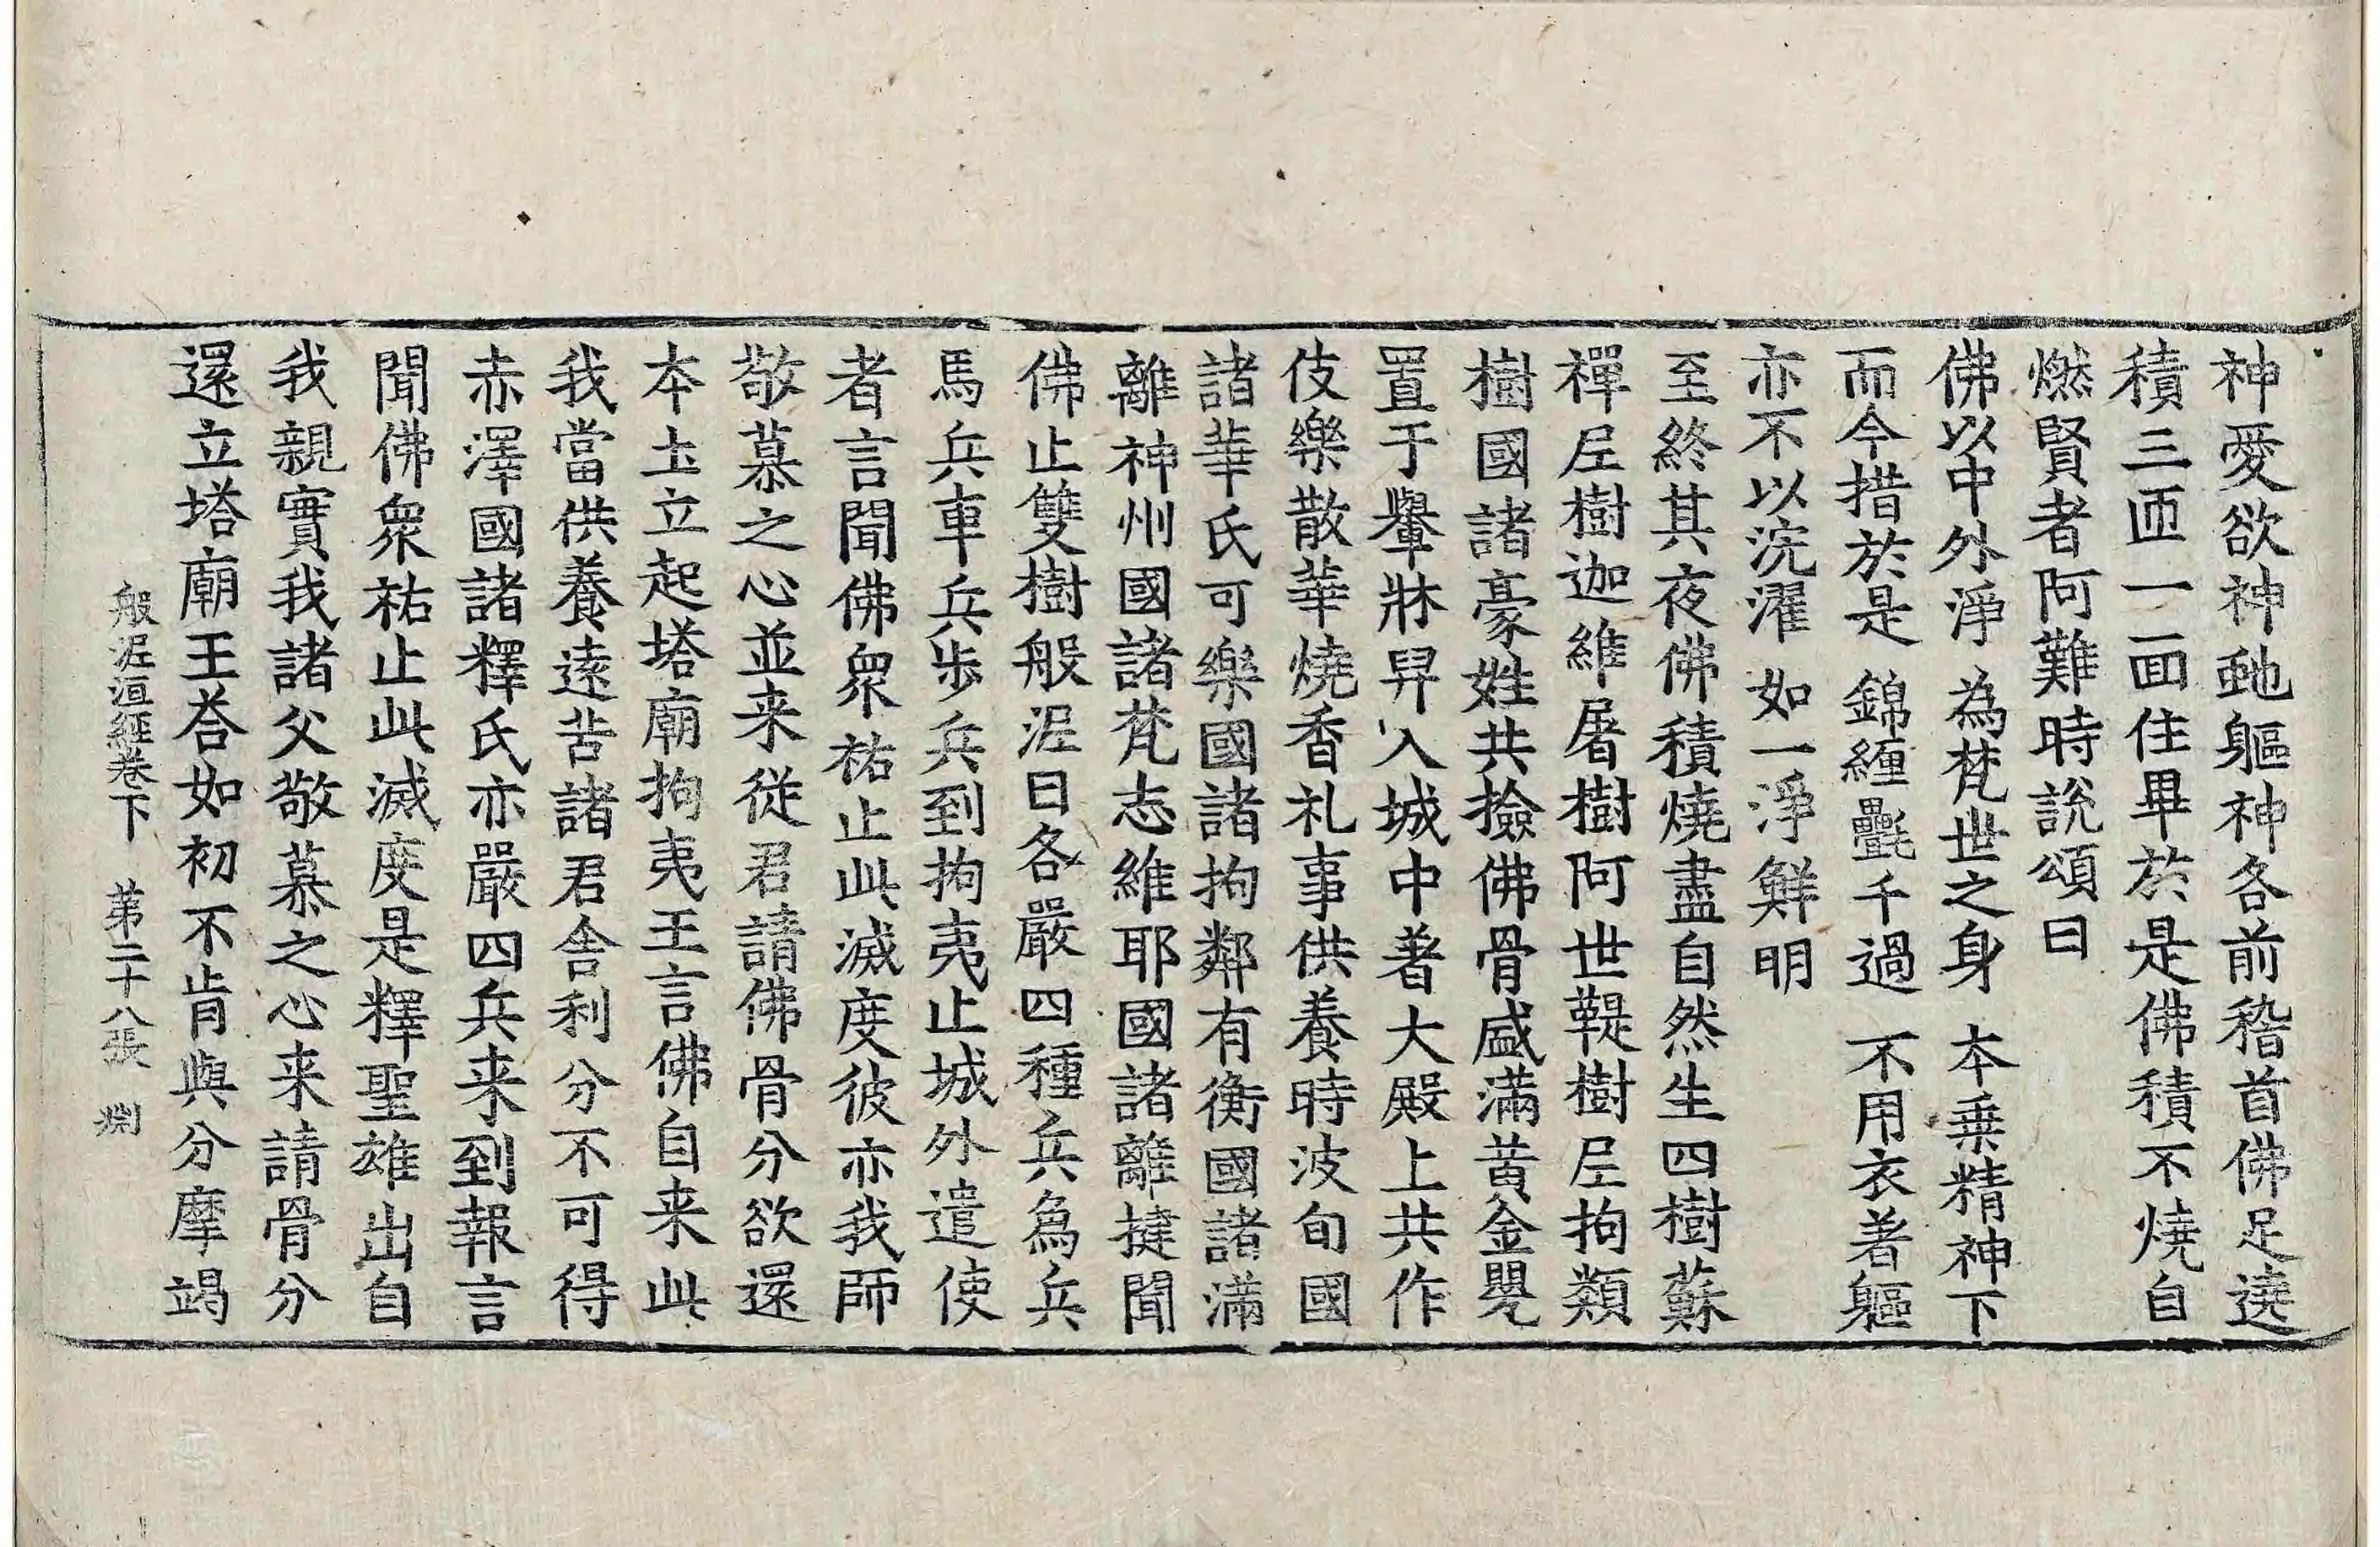 神愛欲神虵軀神各前稽首佛足遶
積三匝一面住畢於是佛積不燒自
燃賢者阿難時說頌曰
佛以中外淨　為梵世之身　本乗精神下
而今措於是　錦纏㲲千過　不用衣著軀
亦不以浣濯　如一淨鮮明
至終其夜佛積燒盡自然生四樹蘇
禪尼樹迦維屠樹阿世鞮樹尼拘類
樹國諸豪姓共撿佛骨盛滿黃金甖
置于轝牀舁入城中著大殿上共作
伎樂散華燒香礼事供養時波旬國
諸華氏可樂國諸拘鄰有衡國諸滿
離神州國諸梵志維耶國諸離揵聞
佛止雙樹般泥曰各嚴四種兵為兵
馬兵車兵步兵到拘夷止城外遣使
者言聞佛衆祐止此滅度彼亦我師
敬慕之心並来從君請佛骨分欲還
本土立起塔廟拘夷王言佛自来此
我當供養遠苦諸君舍利分不可得
赤澤國諸釋氏亦嚴四兵来到報言
聞佛衆祐止此滅度是釋聖雄出自
我親實我諸父敬慕之心来請骨分
還立塔廟王荅如初不肯與分摩竭
般泥洹經卷下　苐二十八張　㓨